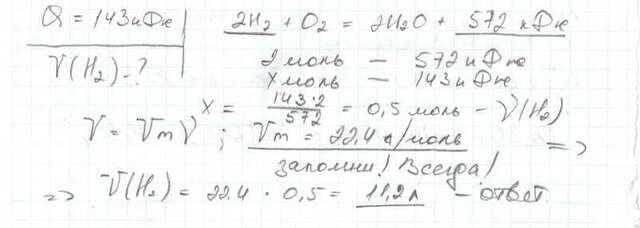 Q = 143 кДж
V(H₂) - ?
2H₂ + O₂ = 2H₂O + 572 кДж
2 моль — 572 кДж
X моль — 143 кДж
X = 143·2 / 572 = 0,5 моль - ν(H₂)
V = Vm ν ; Vm = 22,4 л/моль =>
запомни! Всегда!
=> V(H₂) = 22.4 · 0,5 = 11,2 л - ответ.